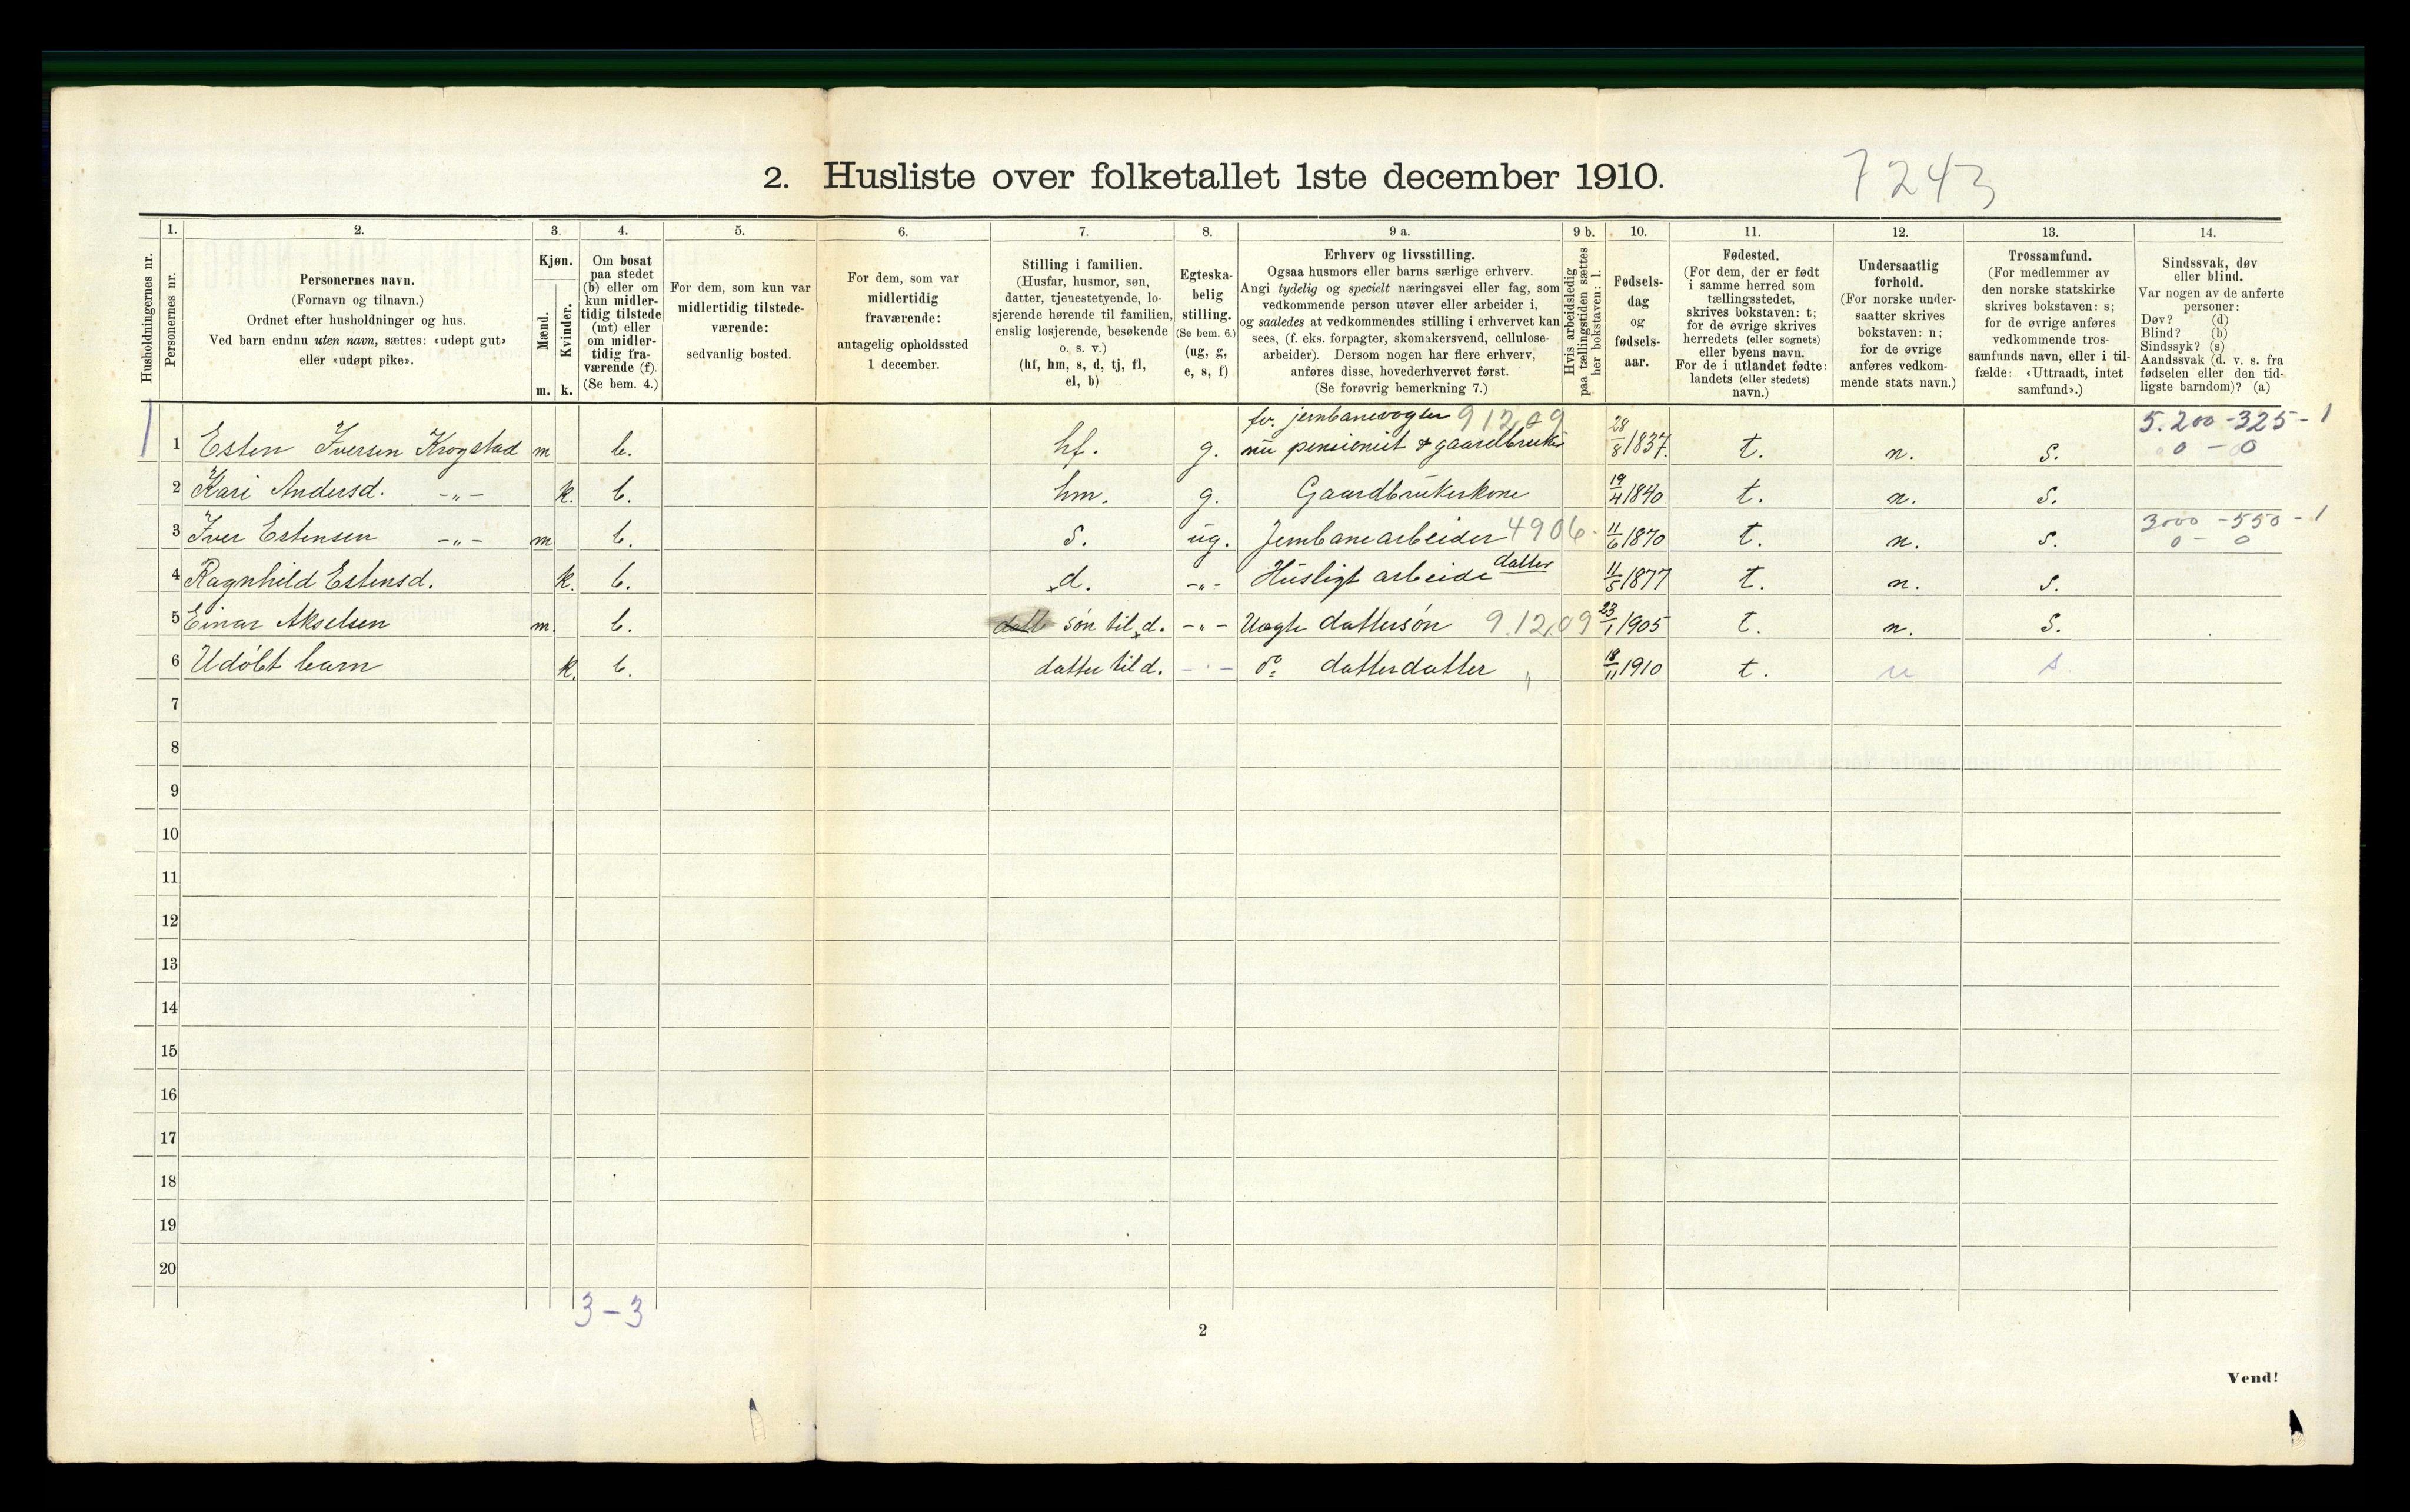 2. Husliste over folketallet 1ste december 1910.
7243
Husholdningernes nr.
1.
Personernes nr.
2.
Personernes navn.
(Fornavn og tilnavn.)
Ordnet efter husholdninger og hus.
Ved barn endnu uten navn, sættes: «udøpt gut»
eller «udøpt pike».
3.
Kjøn.
Mænd.
m.
Kvinder.
k.
4.
Om bosat
paa stedet
(b) eller om
kun midler-
tidig tilstede
(mt) eller
om midler-
tidig fra-
værende (f).
(Se bem. 4.)
5.
For dem, som kun var
midlertidig tilstede-
værende:
sedvanlig bosted.
6.
For dem, som var
midlertidig
fraværende:
antagelig opholdssted
1 december.
7.
Stilling i familien.
(Husfar, husmor, søn,
datter, tjenestetyende, lo-
sjerende hørende til familien,
enslig losjerende, besøkende
o. s. v.)
(hf, hm, s, d, tj, fl,
el, b)
8.
Egteska-
belig
stilling.
(Se bem. 6.)
(ug, g,
e, s, f)
9 a.
Erhverv og livsstilling.
Ogsaa husmors eller barns særlige erhverv.
Angi tydelig og specielt næringsvei eller fag, som
vedkommende person utøver eller arbeider i,
og saaledes at vedkommendes stilling i erhvervet kan
sees, (f. eks. forpagter, skomakersvend, cellulose-
arbeider). Dersom nogen har flere erhverv,
anføres disse, hovederhvervet først.
(Se forøvrig bemerkning 7.)
9 b.
Hvis arbeidsledig
paa tællingstiden sættes
her bokstaven: l.
10.
Fødsels-
dag
og
fødsels-
aar.
11.
Fødested.
(For dem, der er født
i samme herred som
tællingsstedet,
skrives bokstaven: t;
for de øvrige skrives
herredets (eller sognets)
eller byens navn.
For de i utlandet fødte:
landets (eller stedets)
navn.)
12.
Undersaatlig
forhold.
(For norske under-
saatter skrives
bokstaven: n;
for de øvrige
anføres vedkom-
mende stats navn.)
13.
Trossamfund.
(For medlemmer av
den norske statskirke
skrives bokstaven: s;
for de øvrige anføres
vedkommende tros-
samfunds navn, eller i til-
fælde: «Uttraadt, intet
samfund».)
14.
Sindssvak, døv
eller blind.
Var nogen av de anførte
personer:
Døv? (d)
Blind? (b)
Sindssyk? (s)
Aandssvak (d. v. s. fra
fødselen eller den tid-
ligste barndom)? (a)
fv. jernbanevogter 912.09 5.200-325-1
1 1 Esten Iversen Krogstad m b. hf. g. nu pensionist & gaardbruker 28/8 1837. t. n. s. 0 - 0
2 Kari Andersd. -"- k. b. hm. g. Gaardbrukerkone 19/4 1840 t. n. s.
3 Iver Estensen -"- m b. s. ug. Jernbanearbeider 4906. 11/6 1870 t. n. s. 3000 - 550 - 1
0 - 0
4 Ragnhild Estensd. k. b. x d. -"- Husligt arbeide datter 11/5 1877 t. n. s.
5 Einar Akselsen m. b. datt søn til x d. -"- Vogte dattersøn 9.12.09 23/1 1905 t. n. s.
6 Udøbt barn k. b. datter til d. -"- do datterdatter " 18/11 1910 t. n s
7
8
9
10
11
12
13
14
15
16
17
18
19
20
3-3
2
Vend!